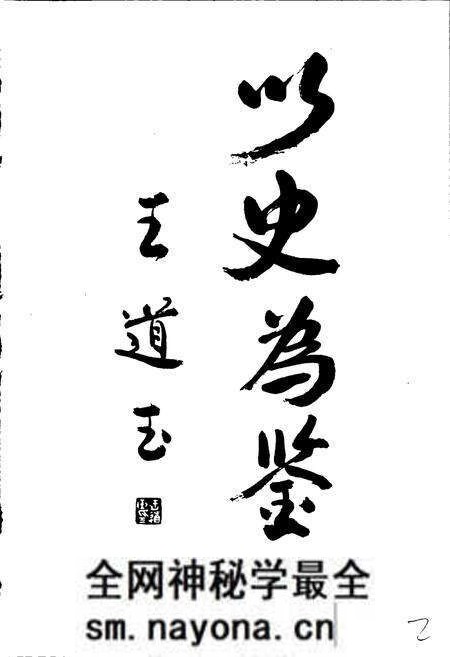 以史為鉴
王道玉
全网神秘学最全
sm.nayona.cn